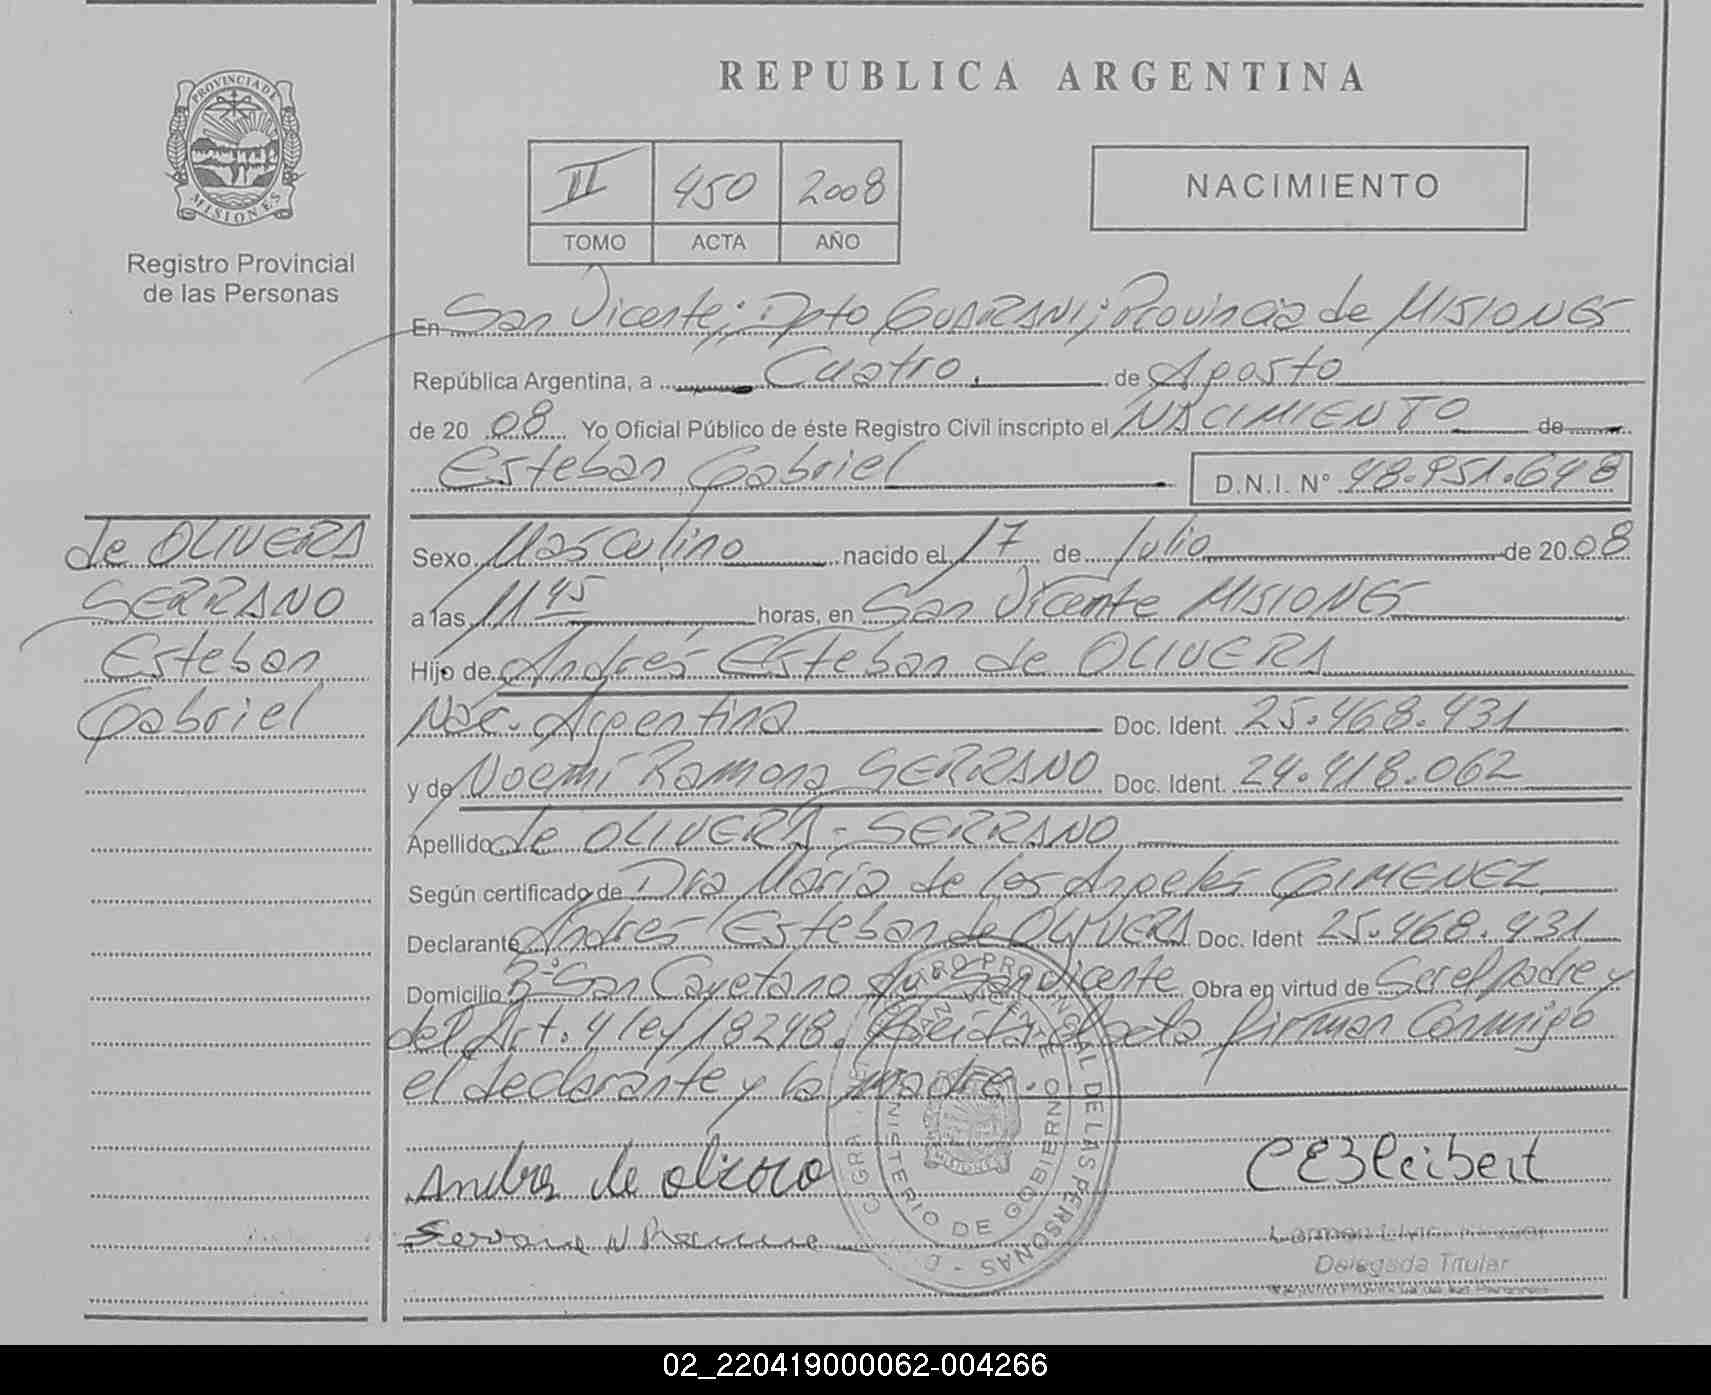 REPUBLICA ARGENTINA
PROVINCIA DE
MISIONES
Registro Provincial
de las Personas
II 450 2008
TOMO ACTA AÑO
NACIMIENTO
En San Vicente; Dpto GUARANI; Provincia de MISIONES
República Argentina, a Cuatro. de Agosto
de 20 08 Yo Oficial Público de éste Registro Civil inscripto el NACIMIENTO de
Esteban Gabriel D.N.I. N° 48.951.648
de OLIVERA
SERRANO
Esteban
Gabriel
Sexo Masculino nacido el 17 de Julio de 20 08
a las 11 45 horas, en San Vicente MISIONES
Hijo de Andrés Esteban de OLIVERA
Nac. Argentina Doc. Ident. 25.468.431
y de Noemí Ramona SERRANO Doc. Ident. 24.418.062
Apellido de OLIVERA - SERRANO
Según certificado de Dra María de los Angeles GIMENEZ
Declarante Andrés Esteban de OLIVERA Doc. Ident 25.468.431
Domicilio Bº San Cayetano San Vicente Obra en virtud de Ser el padre y
del Art. 4 ley 18248. Leída el acta firman Conmigo
el declarante y la madre.
REGISTRO PROVINCIAL DE LAS PERSONAS
SAN VICENTE
MINISTERIO DE GOBIERNO
MISIONES
Andres de olivera
CEBleibert
Serrano N Ramona
Delegada Titular
Registro Provincial de las Personas
02_220419000062-004266